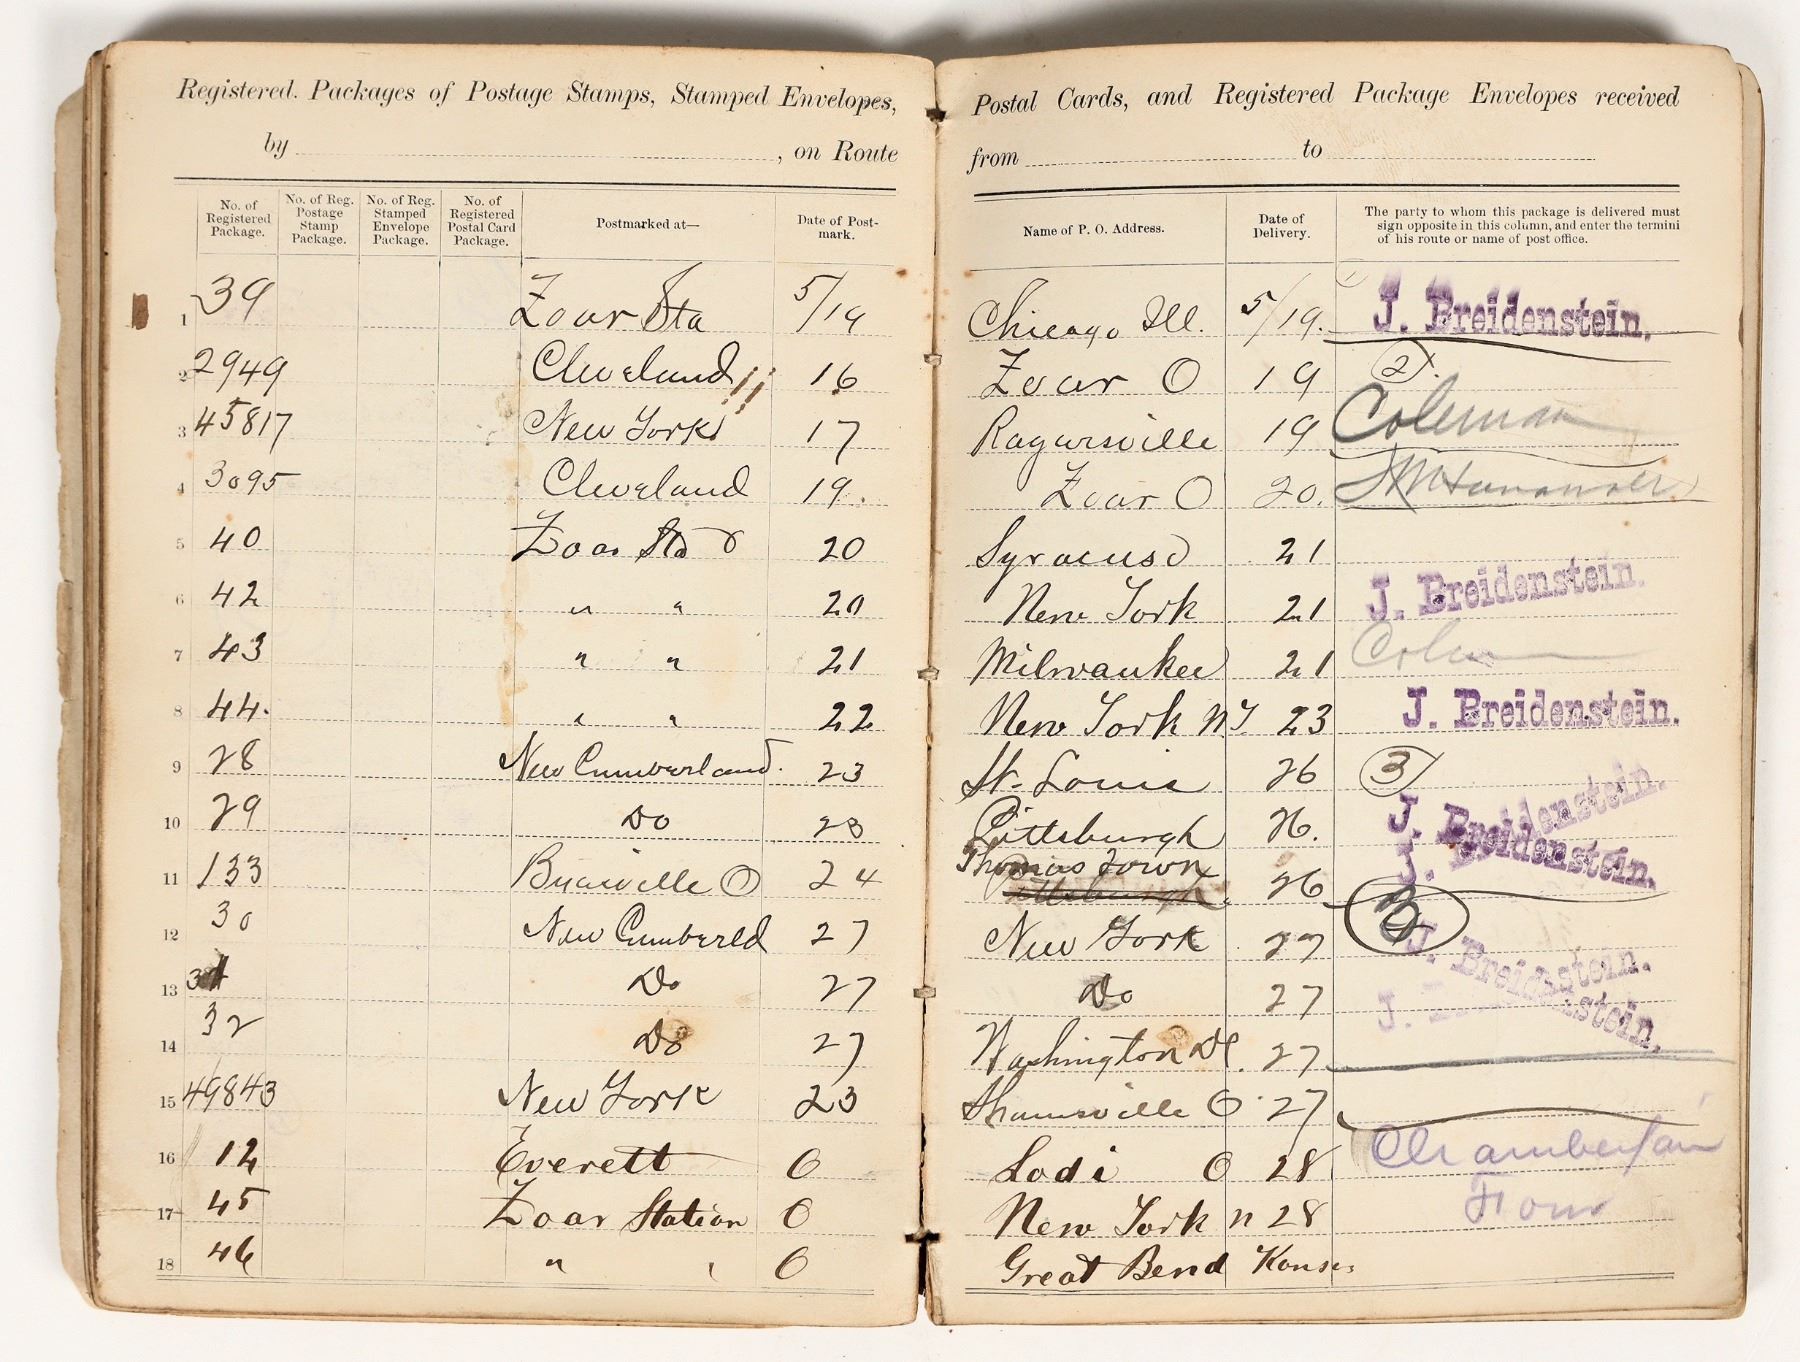 Registered. Packages of Postage Stamps, Stamped Envelopes, Postal Cards, and Registered Package Envelopes received
by , on Route from to
No. of Registered Package. No. of Reg. Postage Stamp Package. No. of Reg. Stamped Envelope Package. No. of Registered Postal Card Package. Postmarked at— Date of Post-mark. Name of P. O. Address. Date of Delivery. The party to whom this package is delivered must sign opposite in this column, and enter the termini of his route or name of post office.
1 39 Zoar Sta 5/19 Chicago Ill. 5/19. J. Breidenstein.
2 2949 Cleveland 16 Zoar O 19 2
3 45817 New York 17 Ragersville 19 Coleman
4 3095 Cleveland 19. Zoar O 20.
5 40 Zoar Sta O 20 Syracuse 21
6 42 " " 20 New York 21 J. Breidenstein.
7 43 " " 21 Milwaukee 21
8 44. " " 22 New York N Y 23 J. Breidenstein.
9 28 New Cumberland. 23 St. Louis 26 3
10 29 Do 23 Pittsburgh 26. J. Breidenstein.
11 133 24 Thomas Town Pittsburgh 26 J. Breidenstein.
12 30 New Cumberld 27 New York 27 3
13 Do 27 Do 27 J. Breidenstein.
14 32 Do 27 Washington DC. 27
15 49843 New York 23 Shanesville O 27
16 12 Everett O Lodi O 28 Chamberlain
17 45 Zoar Station O New York n 28
18 46 " " O Great Bend Kansas